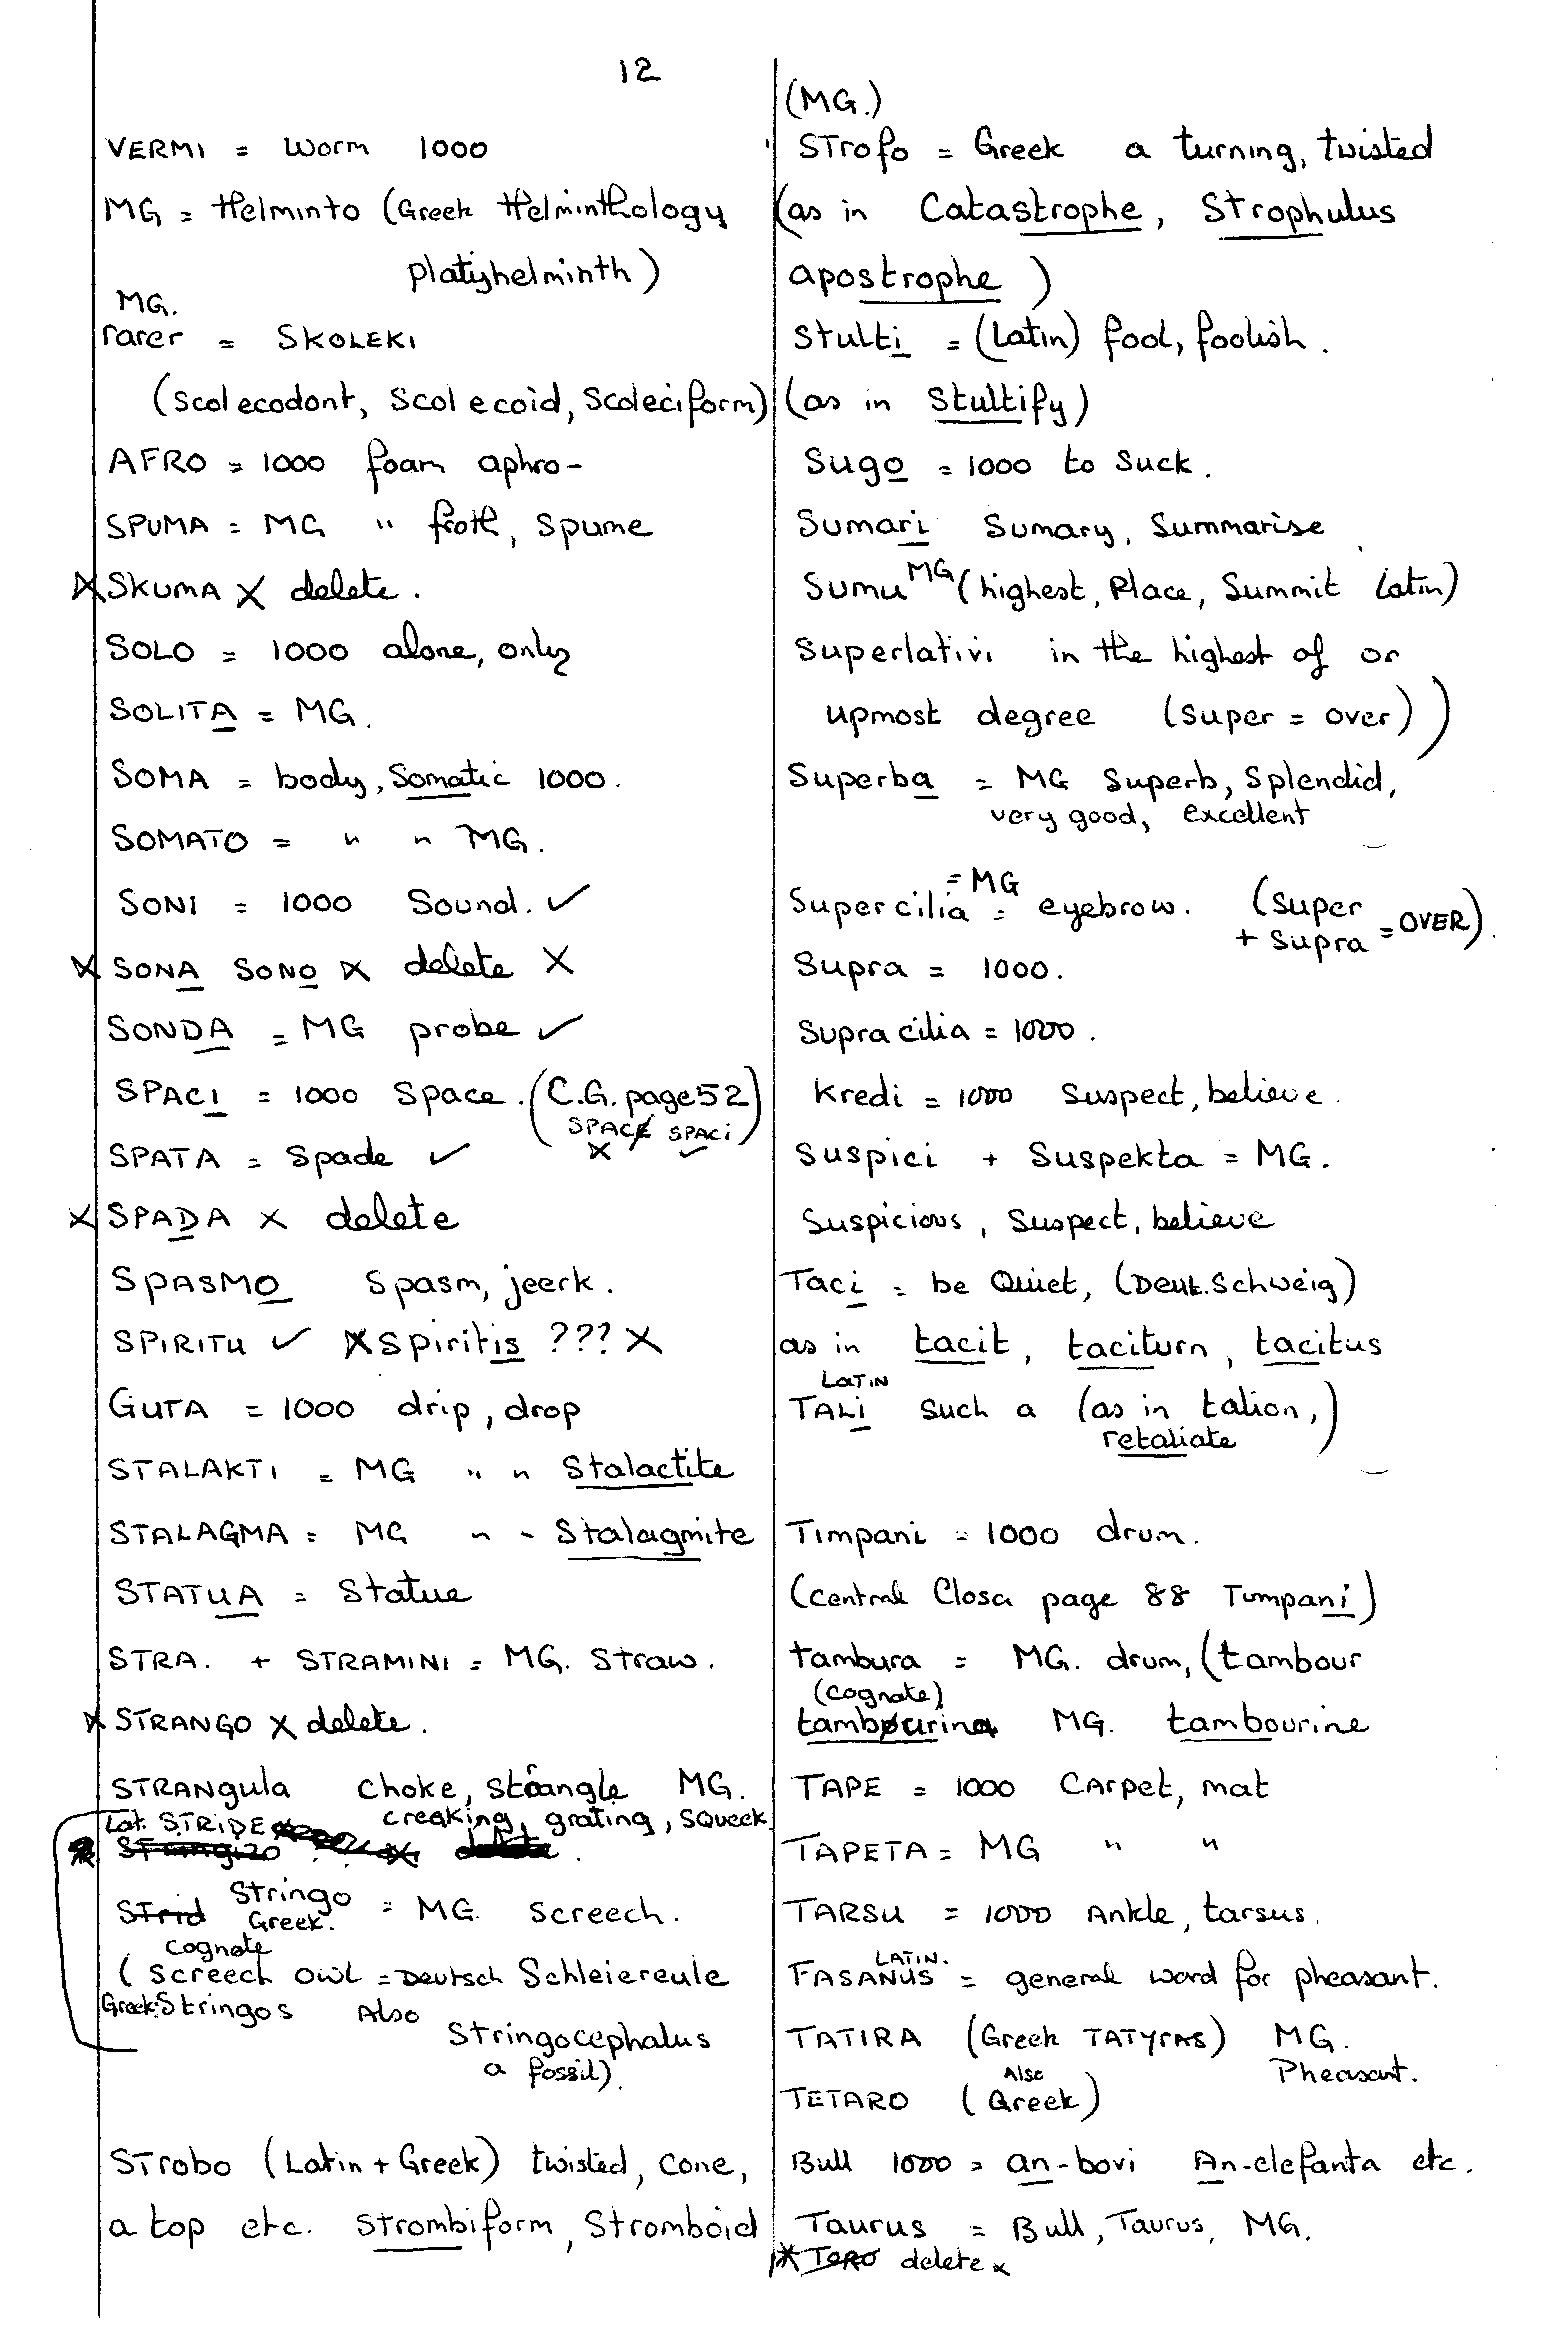 12
VERMI = Worm 1000
MG = Helminto (Greek Helminthology
platyhelminth)
MG.
rarer = SKOLEKI
(Scolecodont, Scolecoid, Scoleciform)
AFRO = 1000 foam aphro-
SPUMA = MG " froth, Spume
X SKUMA X delete.
SOLO = 1000 alone, only
SOLITA = MG.
SOMA = body, Somatic 1000.
SOMATO = " " MG.
SONI = 1000 Sound. ✓
X SONA SONO X delete X
SONDA = MG probe ✓
SPACI = 1000 Space. (C.G. page 52)
SPACE SPACi
X ✓
SPATA = Spade ✓
X SPADA X delete
SPASMO Spasm, jeerk.
SPIRITU ✓ X Spiritis ??? X
GUTA = 1000 drip, drop
STALAKTI = MG " " Stalactite
STALAGMA = MG " " Stalagmite
STATUA = Statue
STRA. + STRAMINI = MG. Straw.
X STRANGO X delete.
STRANgula choke, strangle MG.
Lat. STRIDE creaking, grating, squeek
Strid Stringo = MG. Screech.
Greek.
cognate
(Screech owl = Deutsch Schleiereule
Greek: Stringos Also
Stringocephalus
a fossil).
STrobo (Latin + Greek) twisted, cone,
a top etc. Strombiform, Stromboid
(MG.)
STrofo = Greek a turning, twisted
(as in Catastrophe, Strophulus
apostrophe)
Stulti = (Latin) fool, foolish.
(as in Stultify)
Sugo = 1000 to Suck.
Sumari Sumary, Summarise
Sumu MG (highest, Place, Summit Latin)
Superlativi in the highest of or
upmost degree (Super = over))
Superba = MG Superb, Splendid,
very good, excellent
= MG
Supercilia = eyebrow. (Super
+ Supra = OVER).
Supra = 1000.
Supracilia = 1000.
Kredi = 1000 Suspect, believe.
Suspici + Suspekta = MG.
Suspicious, Suspect, believe
Taci = be Quiet, (Deut. Schweig)
as in tacit, taciturn, tacitus
LATIN
TALi such a (as in talion,)
retaliate
Timpani = 1000 drum.
(Central Glosa page 88 Tumpani)
tambura = MG. drum, (tambour
(cognate)
tamburina MG. tambourine
TAPE = 1000 Carpet, mat
TAPETA = MG " "
TARSU = 1000 Ankle, tarsus.
LATIN.
FASANUS = general word for pheasant.
TATIRA (Greek TATyras) MG.
Pheasant.
Also
TETARO (Greek)
Bull 1000 = an-bovi An-elefanta etc.
Taurus = Bull, Taurus, MG.
X TORO delete X